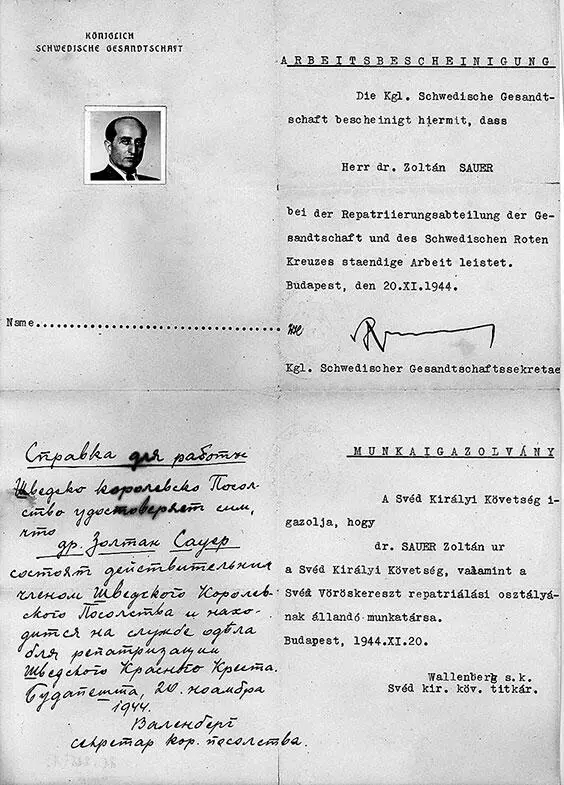 KÖNIGLICH
SCHWEDISCHE GESANDTSCHAFT
Name
ARBEITSBESCHEINIGUNG
Die Kgl. Schwedische Gesandt-
schaft bescheinigt hiermit, dass
Herr dr. Zoltán SAUER
bei der Repatriierungsabteilung der Ge-
sandtschaft und des Schwedischen Roten
Kreuzes staendige Arbeit leistet.
Budapest, den 20.XI.1944.
Kgl. Schwedischer Gesandtschaftssekretae
Справка для работы
Шведско королевско Посол-
ство удостоверяет сим,
что
др. Золтан Сауер
состоят действительник
членом Шведского Королев-
ского Посольства и нахо-
дится на службе одѣла
для репатризации
Шведского Красного Креста.
Будапешта, 20. ноамбра
1944.
Валенберг
секретар кор. посолства.
MUNKAIGAZOLVÁNY
A Svéd Királyi Követség i-
gazolja, hogy
dr. SAUER Zoltán ur
a Svéd Királyi Követség, valamint a
Svéd Vöröskereszt repatriálási osztályá-
nak állandó munkatársa.
Budapest, 1944.XI.20.
Wallenberg s.k.
Svéd kir. köv. titkár.